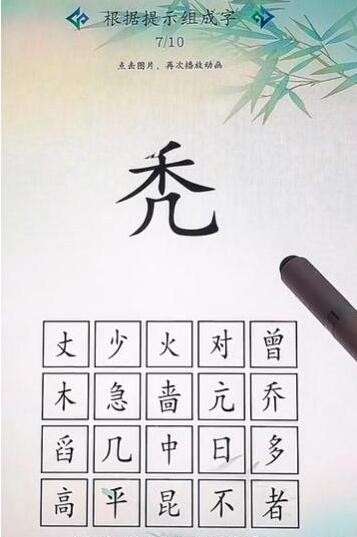 根据提示组成字
7/10
点击图片，再次播放动画
秃
丈 少 火 对 曾
木 急 啬 亢 乔
舀 几 中 日 多
高 平 昆 不 者